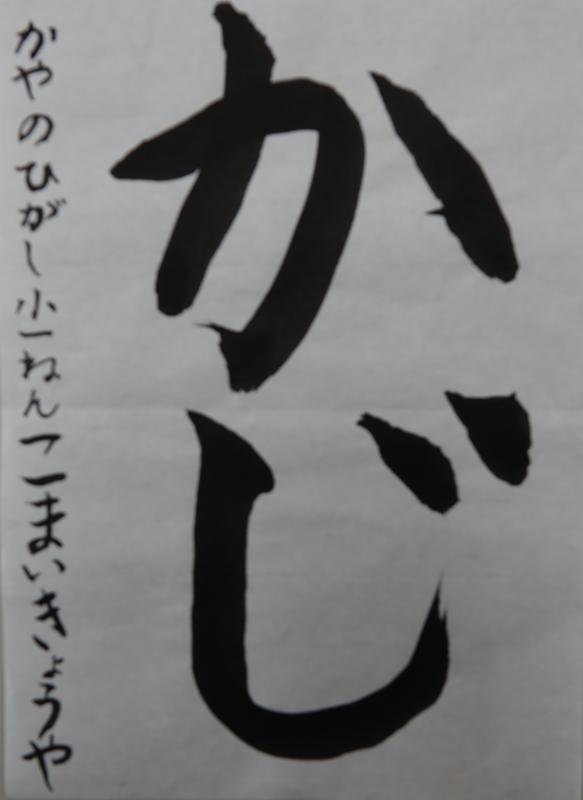 かじ
かやのひがし小一ねん二まいきょうや